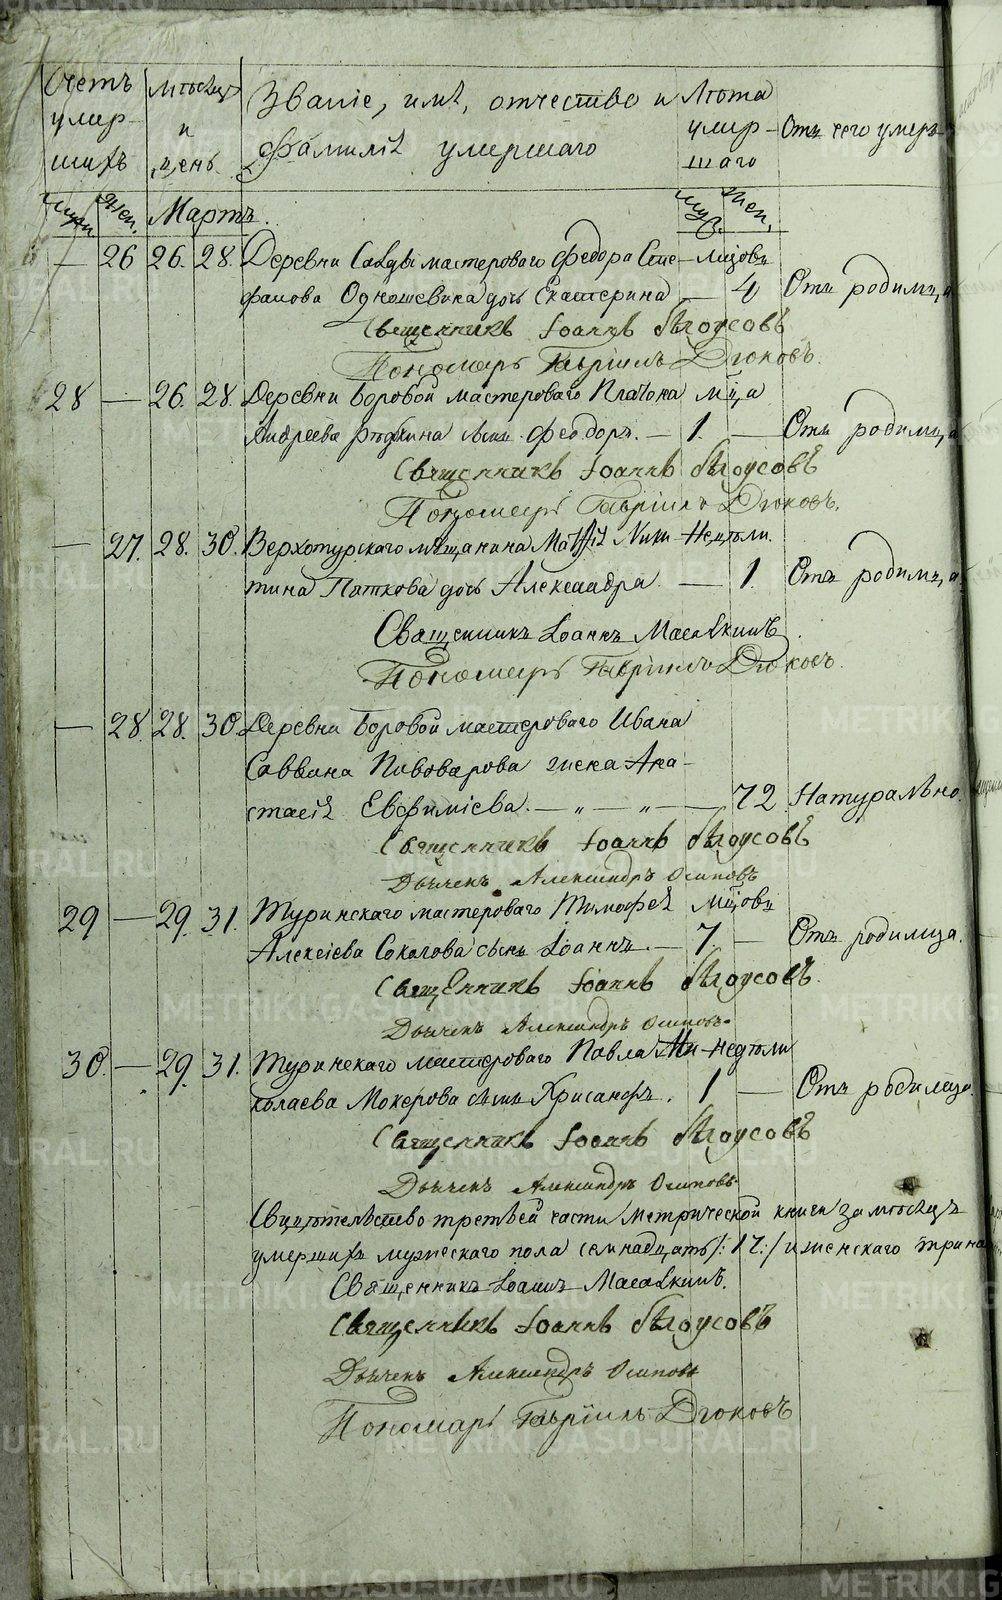 Счетъ умер-шихъ | Мѣсяцъ и день | Званіе, имя, отчество и фамилія умершаго | Лѣта умер-шаго | Отъ чего умеръ
муж. | жен. | Мартъ. | муж. | жен.
— 26 26. 28. Деревни Салды мастероваго Федора Сте- мѣсцовъ
фанова Одношевина дочь Екатерина — 4 Отъ родимца
Священникъ Іоаннъ Бѣлоусовъ
Пономарь Гавріилъ Дюковъ.
28 — 26. 28. Деревни Боровой мастероваго Платона мца
Андреева сынъ Феодоръ. — 1. — Отъ родимца
Священникъ Іоаннъ Бѣлоусовъ
Пономарь Гавріилъ Дюковъ.
— 27. 28. 30. Верхотурскаго мѣщанина Матѳія Ники- Недѣли.
тина Паткова дочь Александра — 1. Отъ родимца
Священникъ Іоаннъ
Пономарь Гавріилъ Дюковъ.
— 28. 28. 30. Деревни Боровой мастероваго Ивана
Саввина Пивоварова жена Ана-
стасія Евфиміева. — „ — „ — 72. Натурально.
Священникъ Іоаннъ Бѣлоусовъ
Дьяченъ Александръ Осиповъ
29 — 29. 31. Туринскаго мастероваго Тимофея мцовъ
Алексіева Соколова сынъ Іоаннъ. — 7. — Отъ родимца.
Священникъ Іоаннъ Бѣлоусовъ.
Дьяченъ Александръ Осиповъ.
30. — 29. 31. Туринскаго мастероваго Павла Ни- недѣли
колаева Мокерова сынъ Хрисанфъ. 1 — Отъ родимца.
Священникъ Іоаннъ Бѣлоусовъ
Дьяченъ Александръ Осиповъ
Свидѣтельство третьей части метрической книги за мѣсяцъ
умершихъ мужескаго пола семнадцать /: 17 :/ и женскаго трина
Священникъ Іоаннъ
Священникъ Іоаннъ Бѣлоусовъ
Дьяченъ Александръ Осиповъ
Пономарь Гавріилъ Дюковъ
METRIKI.GASO-URAL.RU